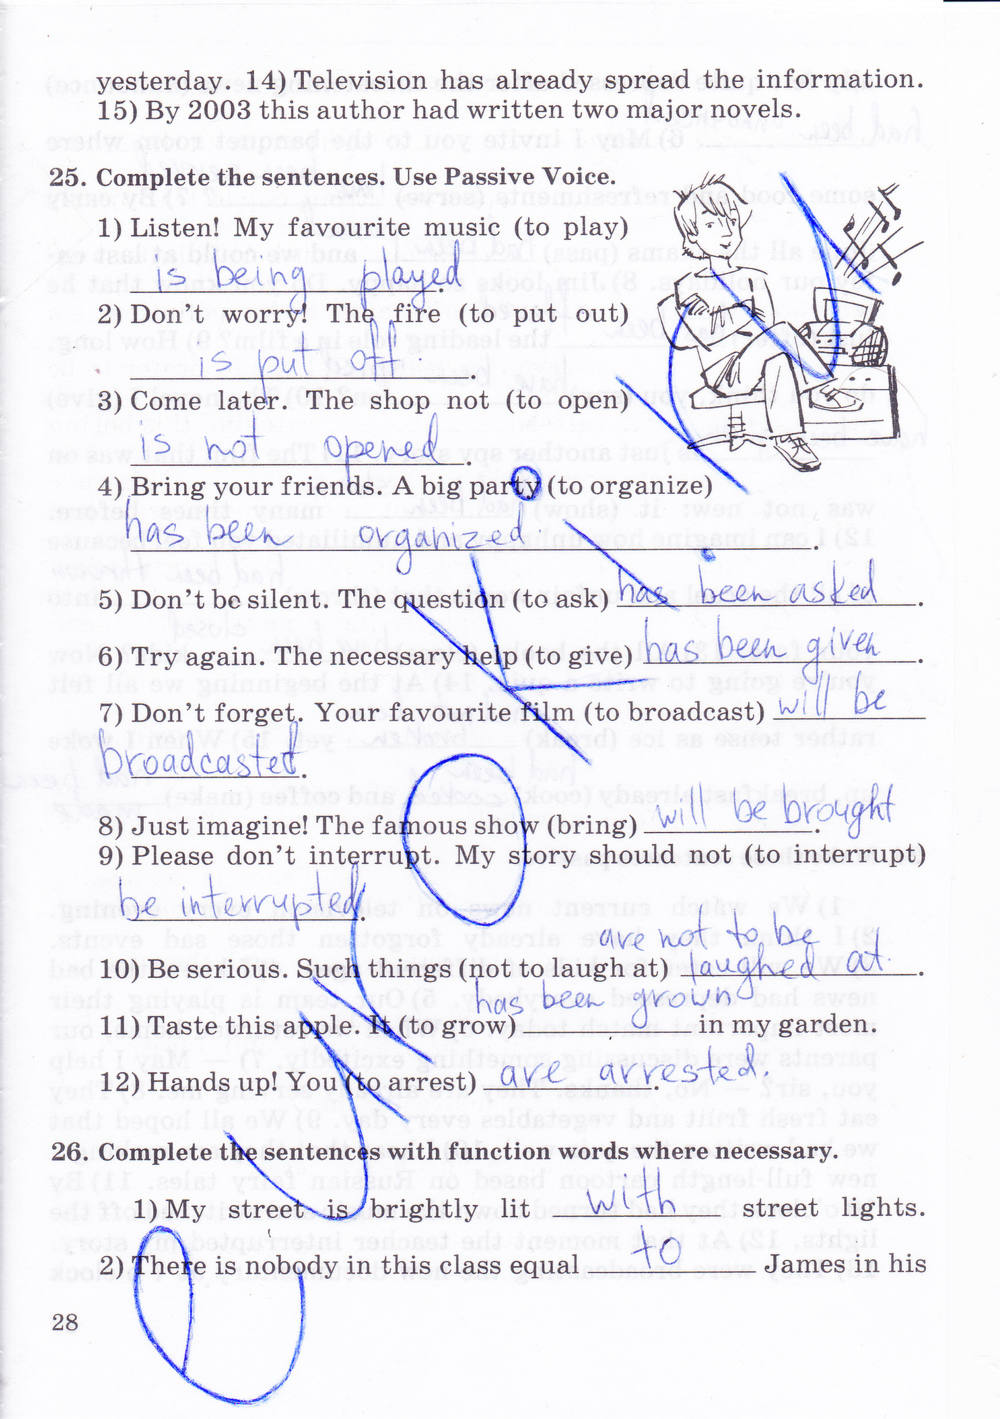 yesterday. 14) Television has already spread the information.
15) By 2003 this author had written two major novels.
25. Complete the sentences. Use Passive Voice.
1) Listen! My favourite music (to play)
is being played
2) Don't worry! The fire (to put out)
is put off.
3) Come later. The shop not (to open)
is not opened.
4) Bring your friends. A big party (to organize)
has been organized.
5) Don't be silent. The question (to ask) has been asked.
6) Try again. The necessary help (to give) has been given.
7) Don't forget. Your favourite film (to broadcast) will be
broadcasted.
8) Just imagine! The famous show (bring) will be brought.
9) Please don't interrupt. My story should not (to interrupt)
be interrupted.
are not to be
10) Be serious. Such things (not to laugh at) laughed at.
11) Taste this apple. It (to grow) has been grown in my garden.
12) Hands up! You (to arrest) are arrested.
26. Complete the sentences with function words where necessary.
1) My street is brightly lit with street lights.
2) There is nobody in this class equal to James in his
28